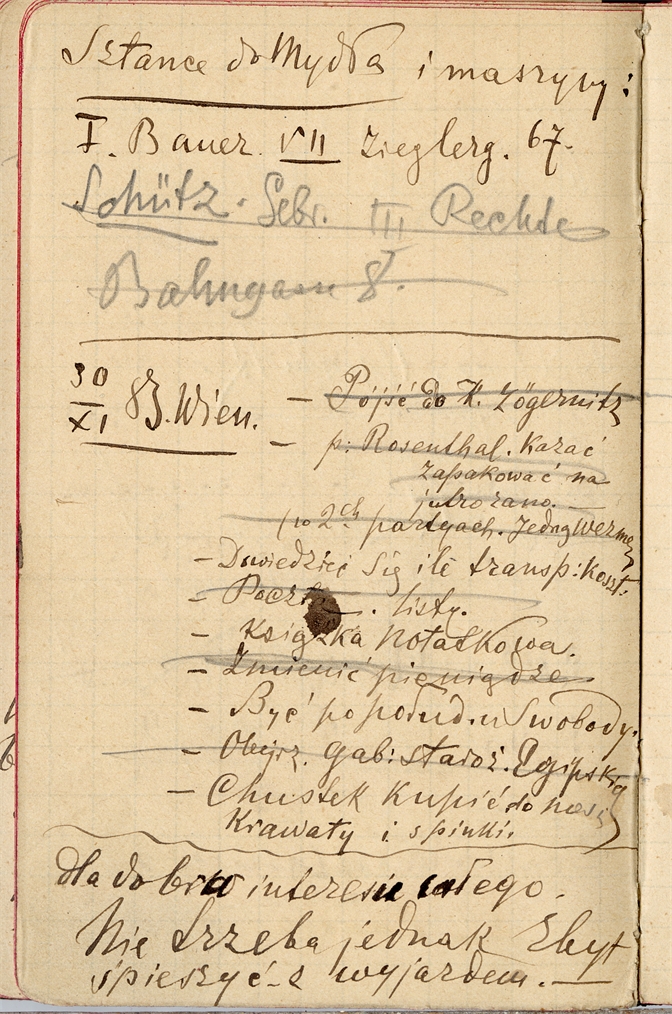 Sztance do Mydła i maszyny:
I. Bauer VII Zieglerg. 67.
Schütz. Gebr. III Rechte
Bahngasse 8.
30/XI 83. Wien. – Pójść do H. Zögernitz
– p. Rosenthal. Kazać
zapakować na
jutro rano. –
(w 2ch partyach. Jedną wezmę)
– Dowiedzieć się ile transp: koszt.
– Poczta. listy.
– Książka notatkowa.
– Zmienić pieniądze
– Być po połud. u Swobody.
– Obejrz. gab: staroż. Egipskie
– Chustek kupić do nosa
Krawaty i spinki.
dla dobra interesu całego.
Nie trzeba jednak zbyt
śpieszyć z wyjazdem. –